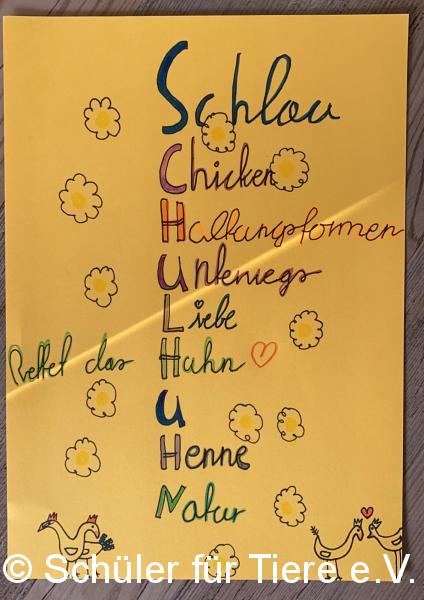 Schlau
Chicken
Haltungsformen
Unterwegs
Liebe
Rettet das Huhn
U
Henne
Natur
© Schüler für Tiere e.V.